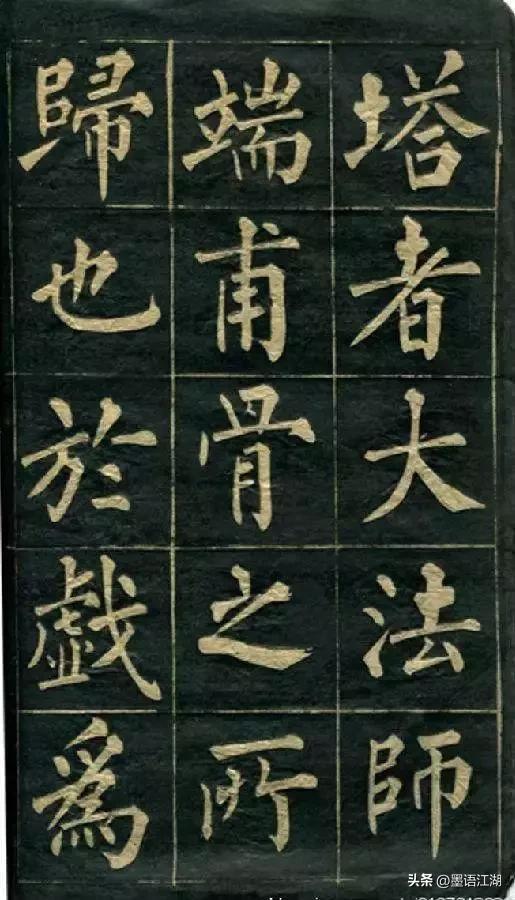 塔者大法師
端甫骨之所
歸也於戯為
头条 @墨语江湖